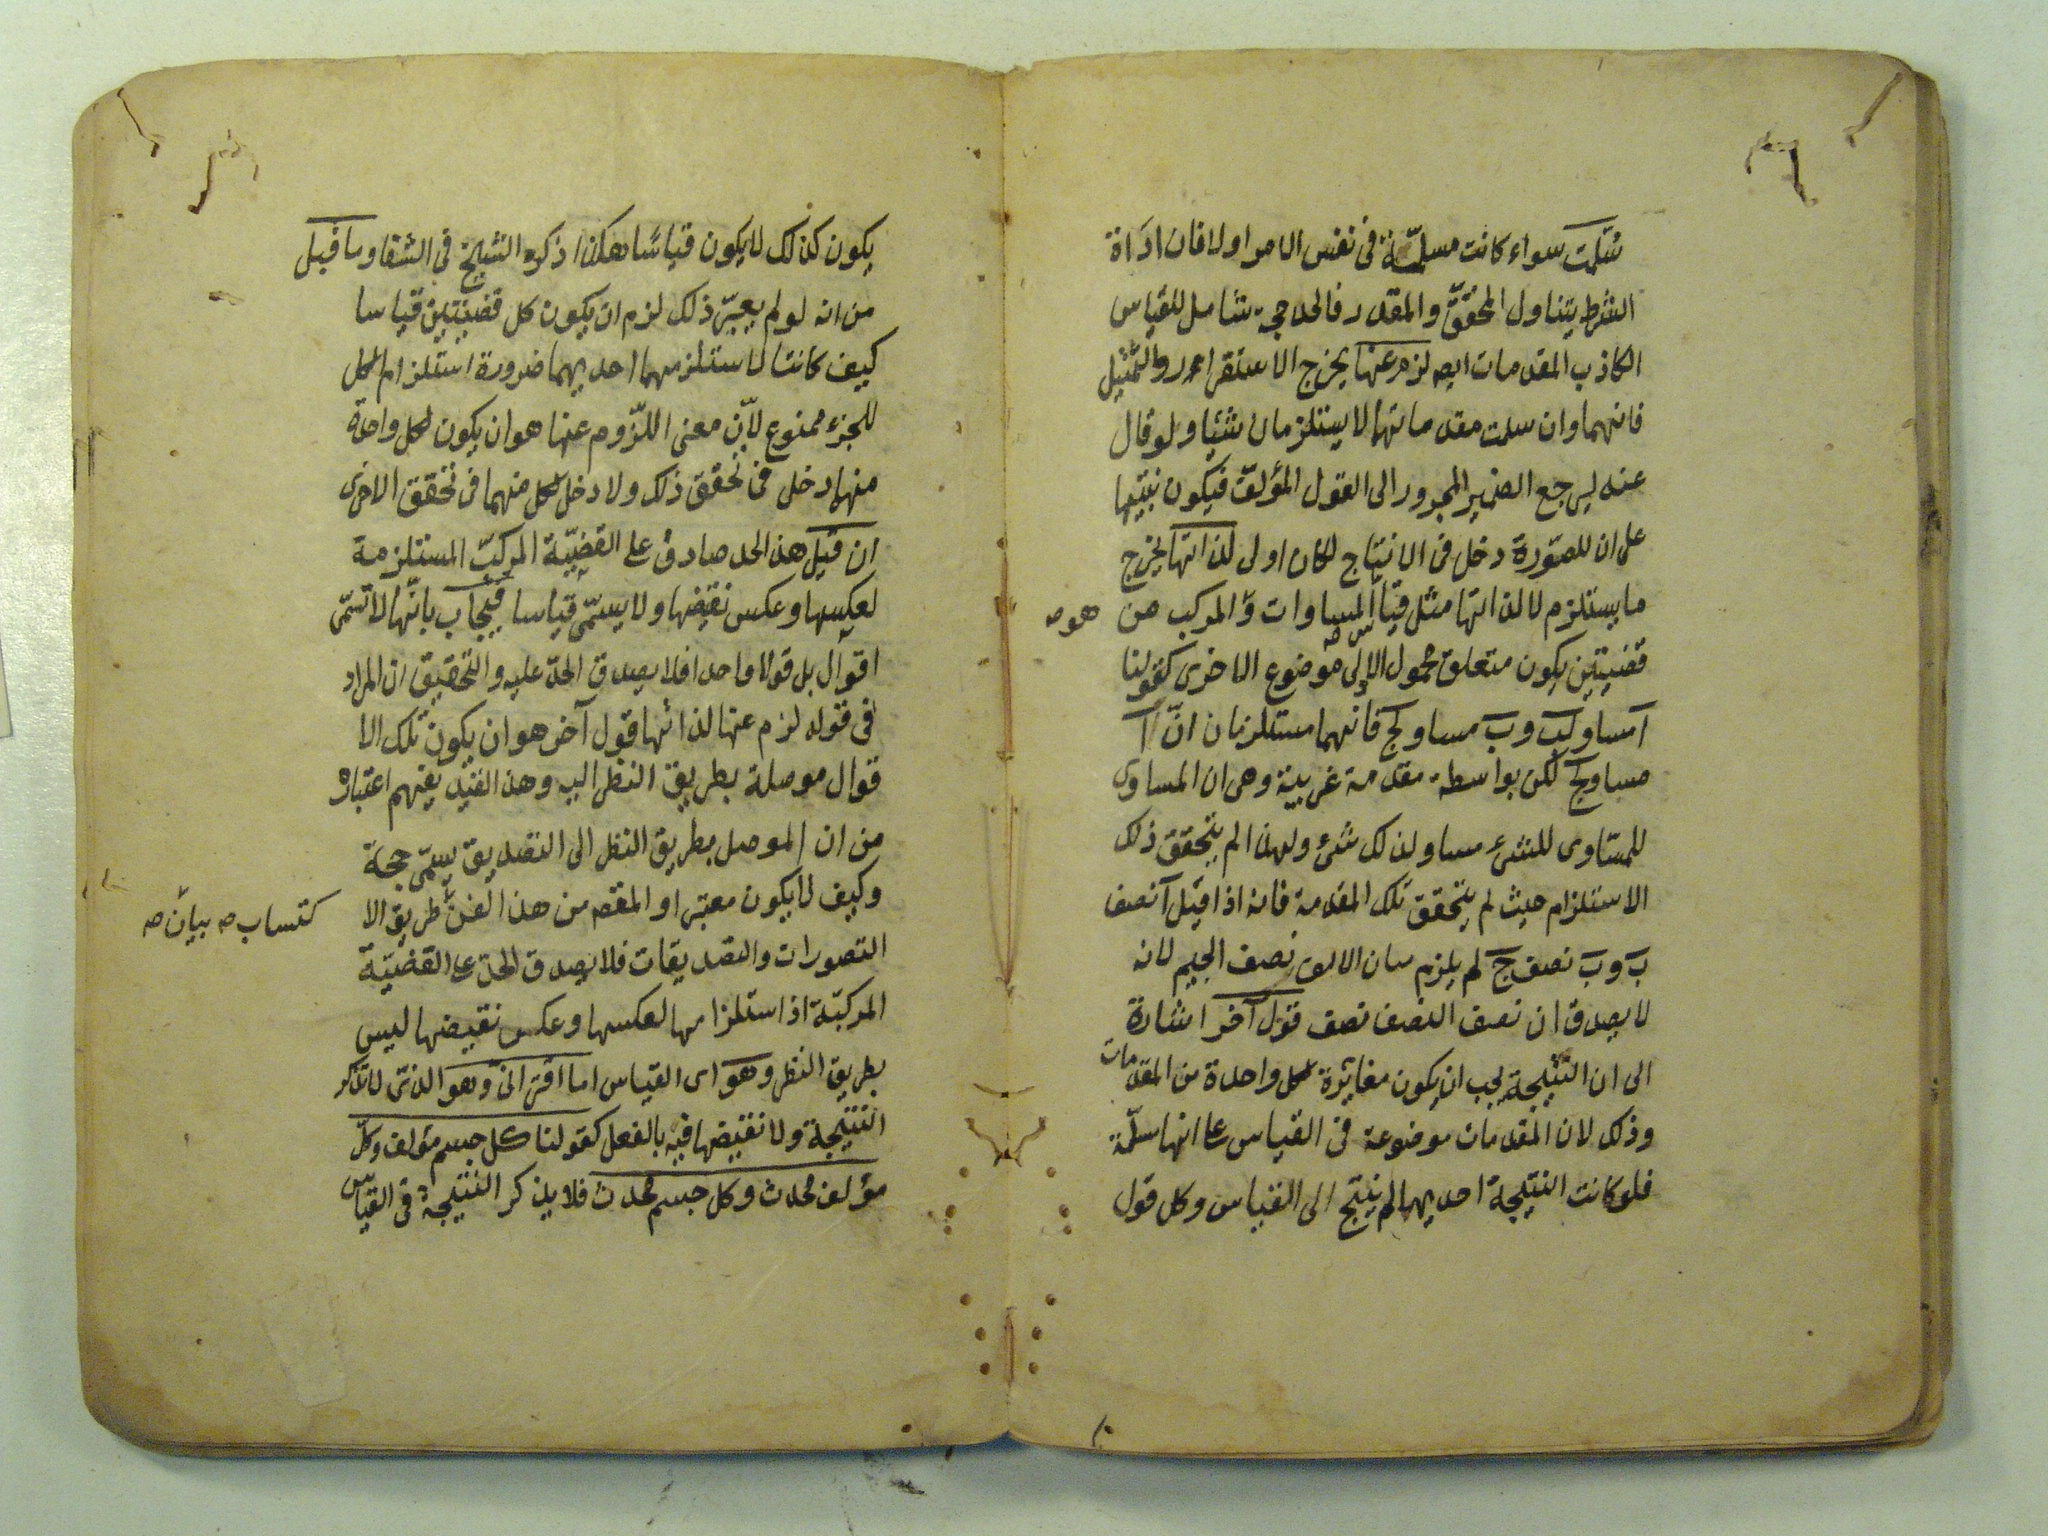 سُلّمت سواء كانت مسلّمة فى نفس الامر اولا فان اداة
الشرط يتناول المحقّق والمقدر فالحد ح شامل للقياس
الكاذب المقدمات ايضا لزم عنها يخرج الاستقراء والتمثيل
فانهما وان سلمت مقدماتهما لا يستلزمان شئيا ولو قال
عنه ليرجع الضمير المجرور الى القول المؤلّف فيكون تنبيها
على ان للصّورة دخل فى الانتاج لكان اولى لذاتها يخرج
ما يستلزم لا لذاتها مثل قياس المساوات و المركب من
هو
قضيتين يكون متعلق محمول الاولى موضوع الاخرى كقولنا
آ مساو لب وب مساو لج فانهما مستلزمان انّ آ
مساو لج لكن بواسطة مقدمة غريبة وهى ان المساوى
للمساوى للشئ مساو لذلك شئ ولهذا لم يتحقق ذلك
الاستلزام حيث لم يتحقق تلك المقدمة فانه اذا قيل آ نصف
ب وب نصف ج لم يلزم الالف نصف الجيم لانه
لا يصدق ان نصف النصف نصف قول آخر اشارة
الى ان النتيجة يجب ان يكون مغائرة لكل واحدة من المقدمات
وذلك لان المقدمات موضوعة فى القياس على انها مسلّمة
فلو كانت النتيجة احديهما لم ينتج الى القياس وكل قول
يكون كذلك لا يكون قياسًا هكذا ذكره الشيخ فى الشفا وما قيل
من انه لو لم يعبّر ذلك لزم ان يكون كل قضيتين قياسا
كيف كانتا لاستلزمهما احديهما ضرورة استلزام الكل
للجزء ممنوع لانّ معنى اللّزوم عنها هو ان يكون لكل واحدة
منها دخل فى تحقق ذلك ولا دخل لكل منهما فى تحقق الاخرى
ان قيل هذا الحد صادق على القضيّة المركبّ المستلزمة
لعكسها وعكس نقيضها ولا يسمّى قياسا فيجاب بانّها لا تسمّى
اقوال بل قولا واحدا فلا يصدق الحدّ عليه والتحقيق ان المراد
فى قوله لزم عنها لذاتها قول آخر هو ان يكون تلك الا
قوال موصلة بطريق النظر اليه وهذا القيد يفهم اعتباره
من ان الموصل بطريق النظر الى التصديق يسمّى حجة
وكيف لا يكون معتبرا والمقصد من هذا الفنّ طريق الا
كتساب بيان
التصورات والتصديقات فلا يصدق الحدّ على القضيّة
المركبّة اذ استلزامها لعكسها وعكس نقيضها ليس
بطريق النظر وهو اى القياس اما اقترانىّ وهو الذى لا تذكر
النتيجة ولا نقيضها فيه بالفعل كقولنا كل جسم مؤلف وكل
مؤلف محدث وكل جسم محدث فلا يذكر النتيجة فى القياس